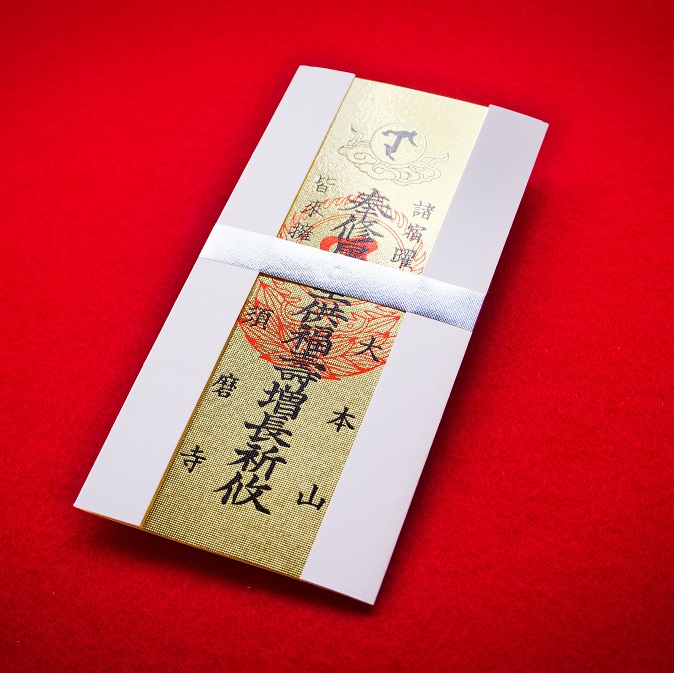 諸宿曜
奉修
供福壽増長祈攸
皆来擁
大本山
須磨寺